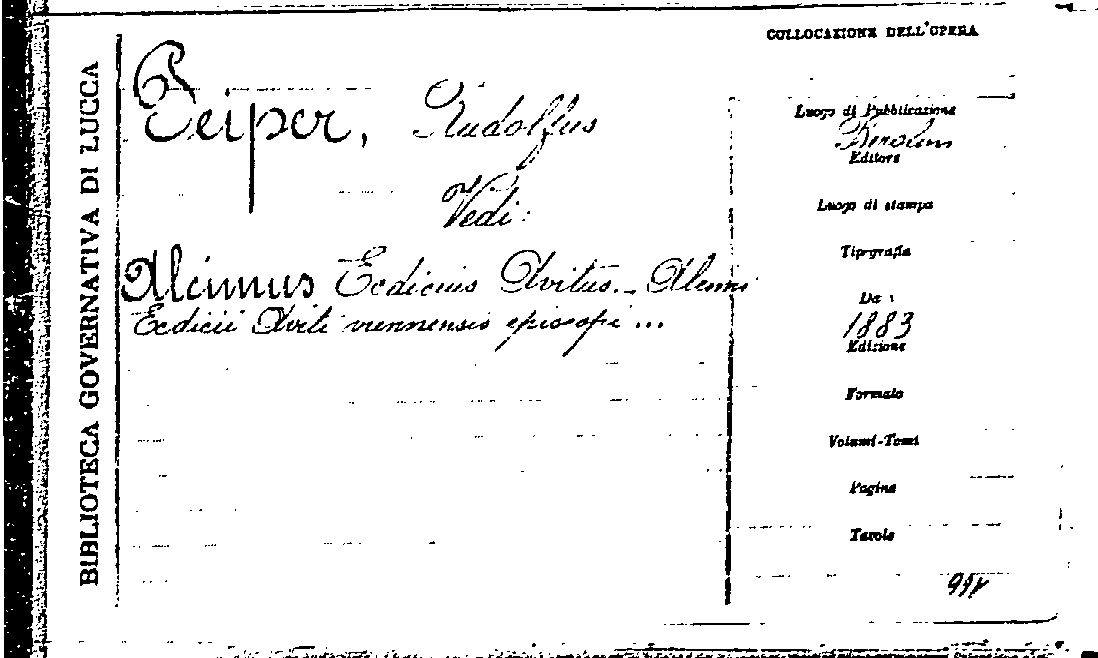 COLLOCAZIONE DELL'OPERA
BIBLIOTECA GOVERNATIVA DI LUCCA
Peiper, Rudolfus
Vedi:
Alcimus Ecdicius Avitus. - Alcimi
Ecdicii Aviti viennensis episcopi ...
Luogo di Pubblicazione
Berolini
Editore
Luogo di stampa
Tipografia
Data
1883
Edizione
Formato
Volumi-Tomi
Pagine
Tavole